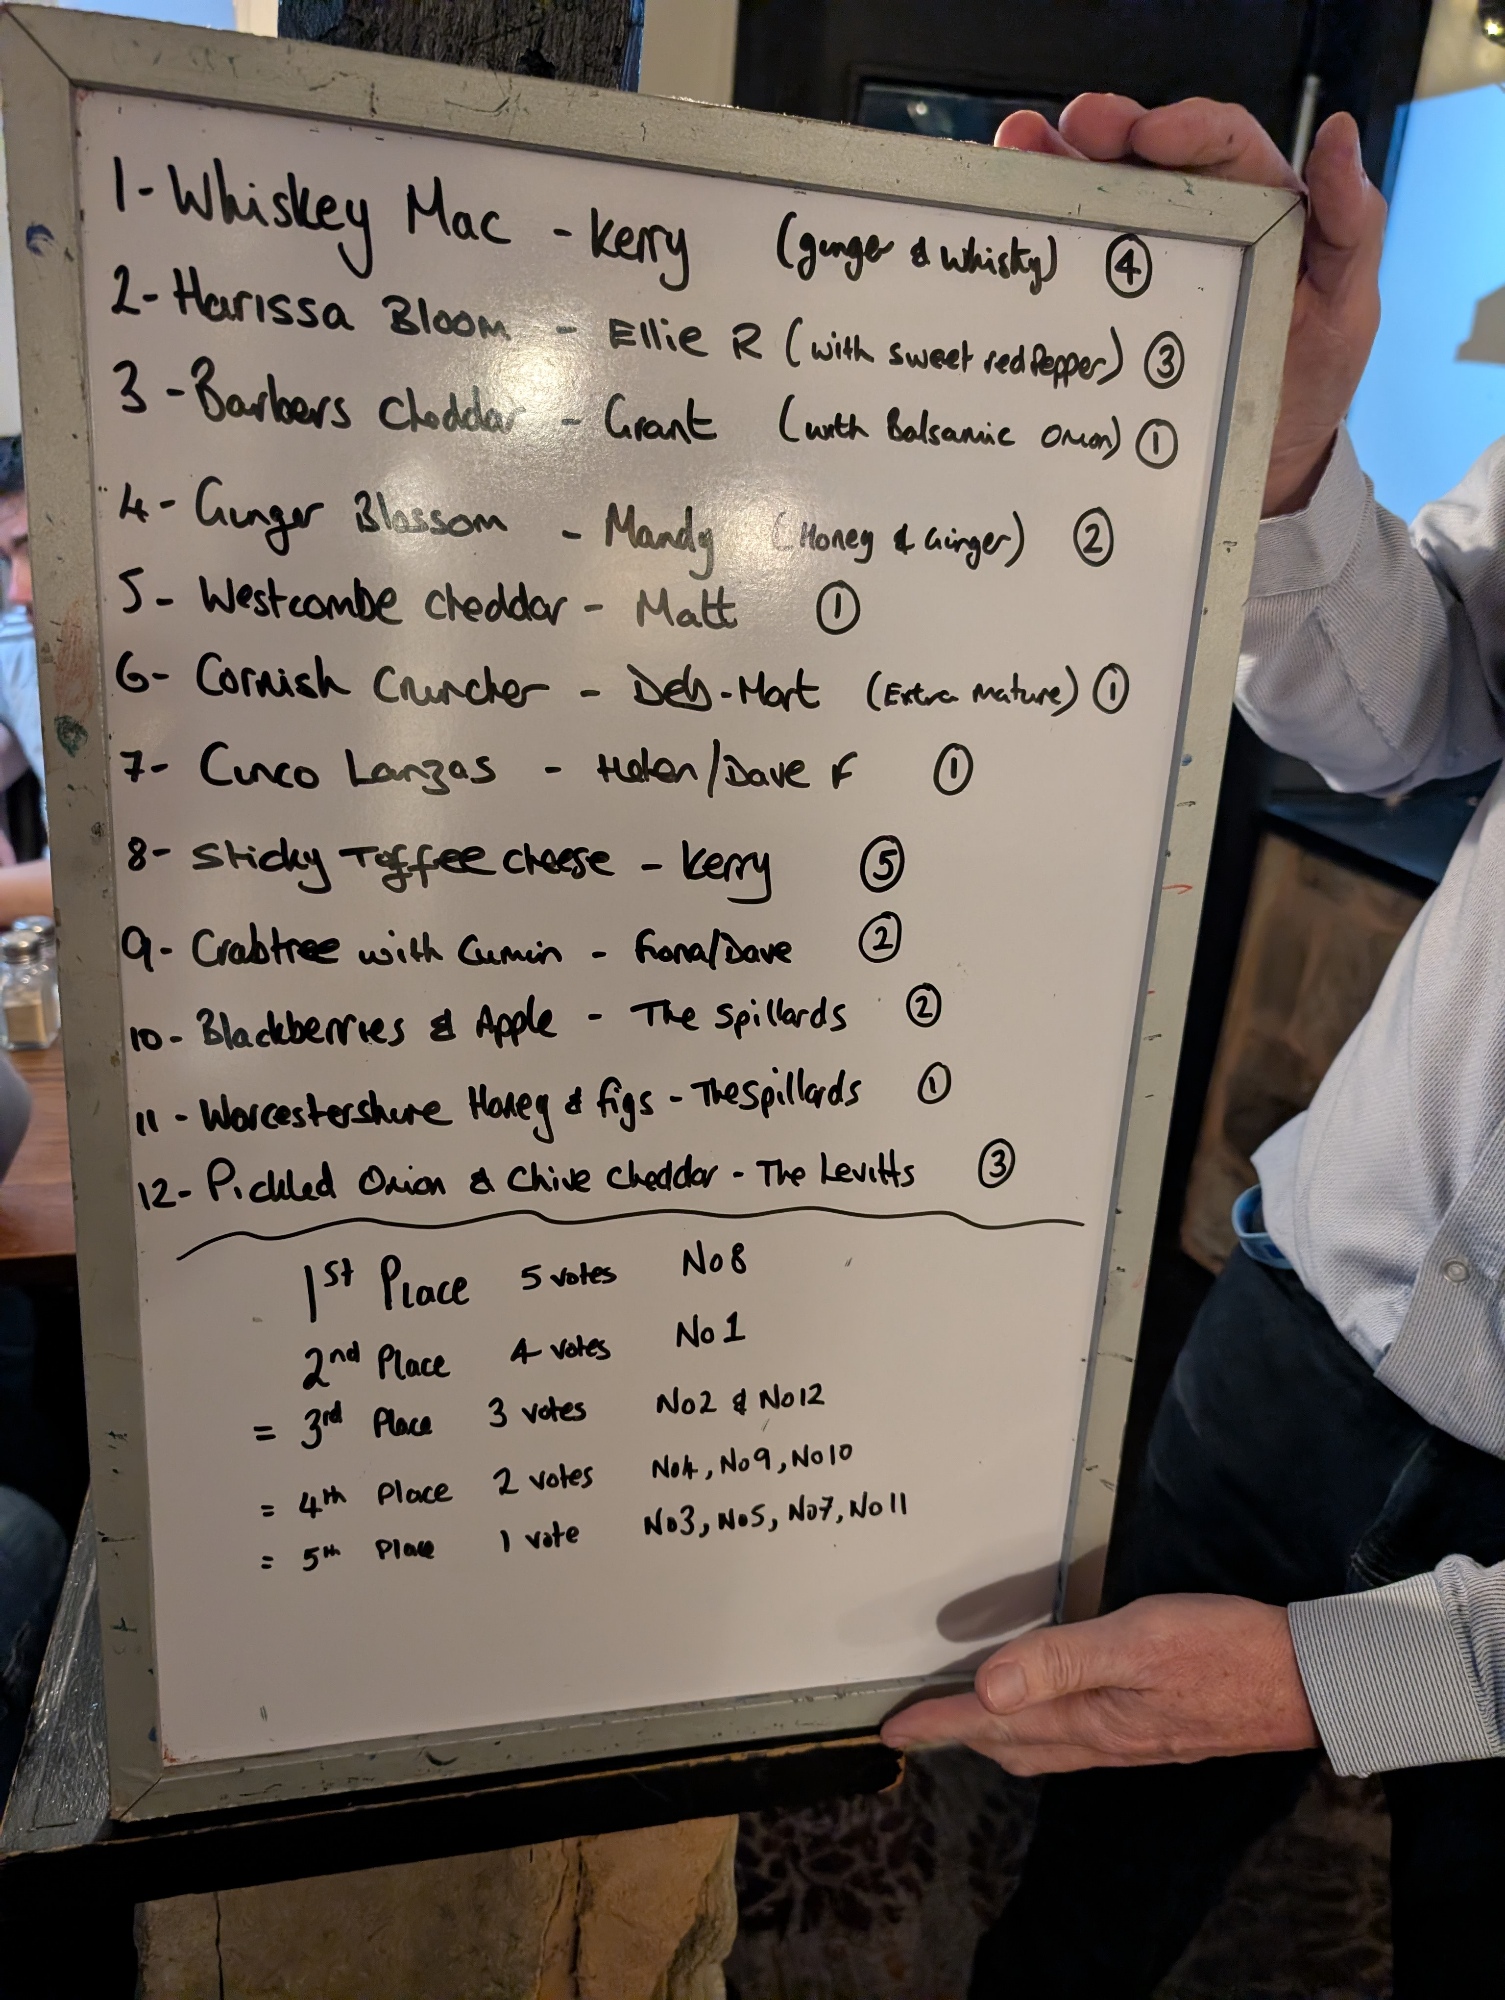 1- Whiskey Mac - Kerry (ginger & whisky) ④
2- Harissa Bloom - Ellie R (with sweet red Pepper) ③
3 - Barbers Cheddar - Grant (with Balsamic Onion) ①
4- Ginger Blossom - Mandy (Honey & Ginger) ②
5- Westcombe cheddar - Matt ①
6- Cornish Cruncher - Deb-Mart (Extra Mature) ①
7- Cinco Lanzas - Helen/Dave F ①
8- Sticky Toffee cheese - Kerry ⑤
9- Crabtree with Cumin - Fiona/Dave ②
10- Blackberries & Apple - The Spillards ②
11 - Worcestershire Honey & figs - The Spillards ①
12- Pickled Onion & Chive Cheddar - The Levitts ③
1st Place 5 votes No 8
2nd Place 4 votes No 1
= 3rd Place 3 votes No2 & No12
= 4th Place 2 votes No4, No9, No10
= 5th Place 1 vote No3, No5, No7, No11